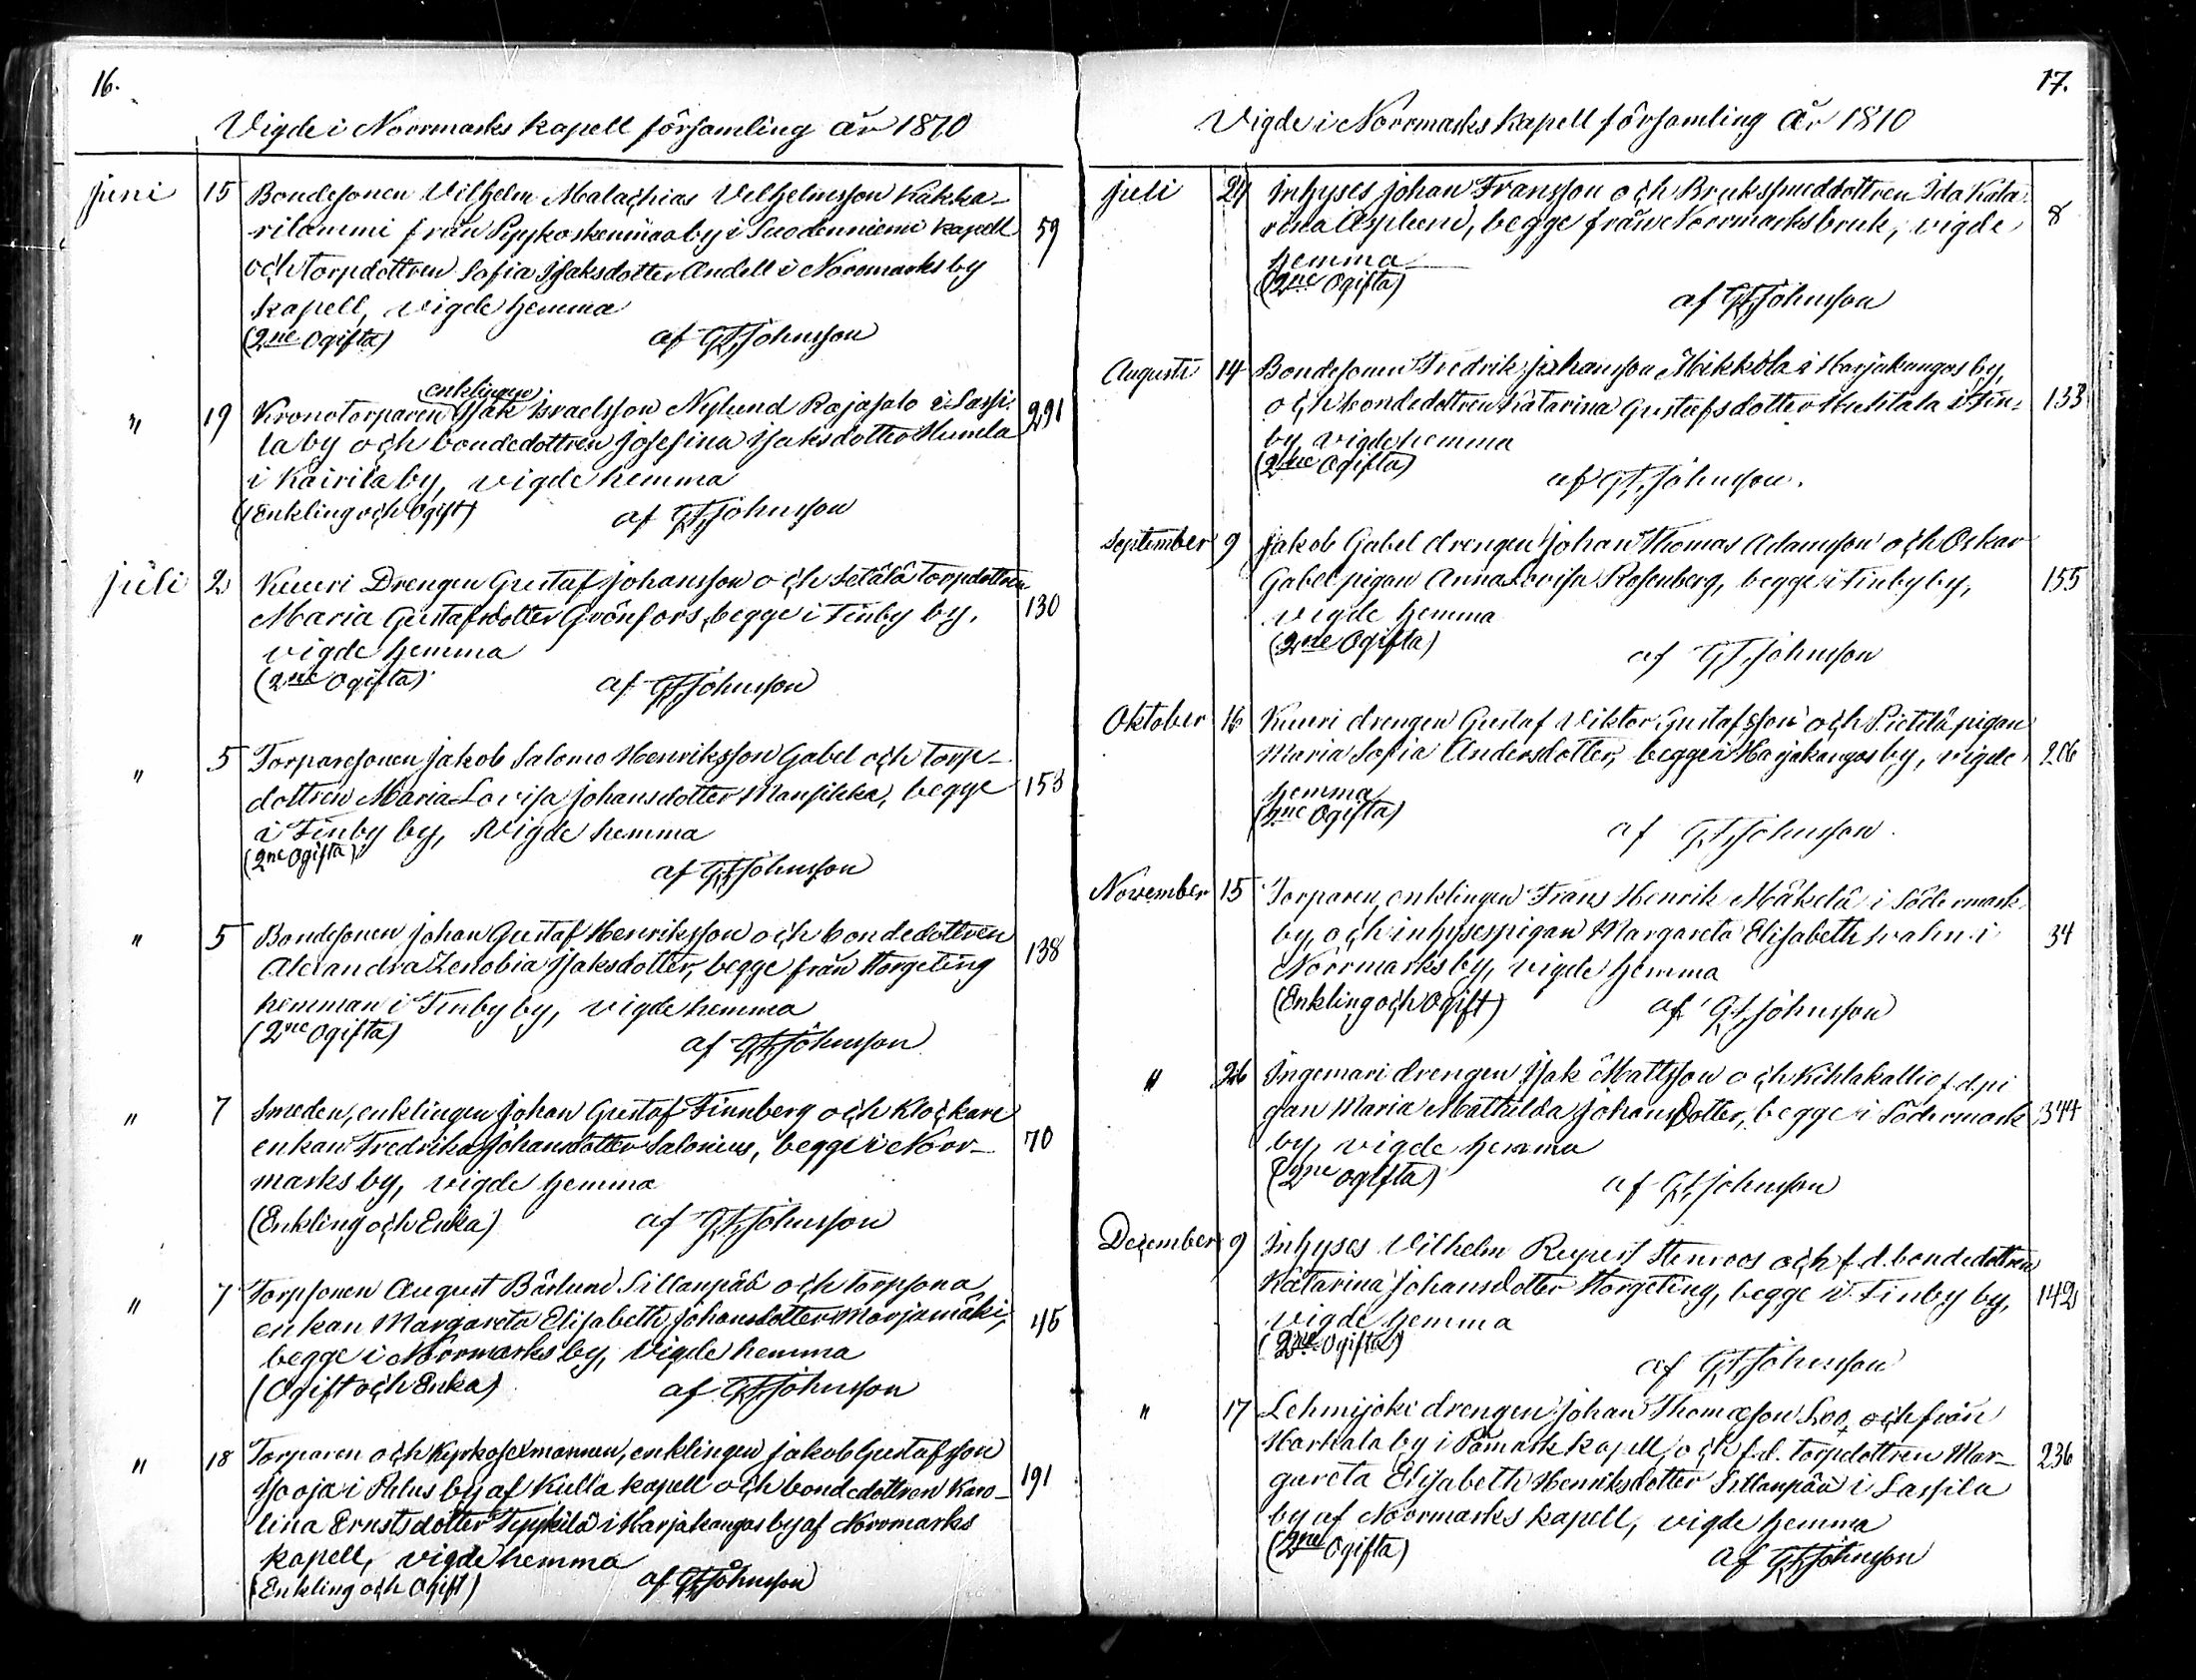 16.
Vigde i Norrmarks kapell församling år 1870
juni 15 Bondesonen Vilhelm Malachias Vilhelmsson Kákka-
rilammi från Pyykoskenmaa by i Suodenniemi kapell 59
och torpdottren Sofia Isaksdotter Andell i Norrmarks by
kapell, vigde hemma
(2ne Ogifta) af G.F. Johnsson
enklingen
" 19 Kronotorparen Isak Israelsson Nylund Rajasalo i Lassi-
la by och bondedottren Josefina Isaksdotter Humla 291
i Kairila by, vigde hemma
(Enkling och Ogift) af G.F. Johnsson
juli 2 Kuuri Drengen Gustaf Johansson och Setälä torpdottren
Maria Gustafsdotter Grönfors, begge i Finby by, 130
vigde hemma
(2ne Ogifta) af G.F. Johnsson
" 5 Torparesonen Jakob Salomo Henriksson Gabel och torp-
dottren Maria Lovisa Johansdotter Mansikka, begge 153
i Finby by, Vigde hemma
(2ne Ogifta) af G.F. Johnsson
" 5 Bondesonen Johan Gustaf Henriksson och bondedottren
Alexandra Zenobia Isaksdotter, begge från Storgeting 138
hemman i Finby by, vigde hemma
(2ne Ogifta) af G.F. Johnsson
" 7 Smeden, enklingen Johan Gustaf Finnberg och Klockare
enkan Fredrika Johansdotter Salonius, begge i Norr- 70
marks by, vigde hemma
(Enkling och Enka) af G.F. Johnsson
" 7 Torpsonen August Bärlund Sillanpää och torpsona
enkan Margareta Elisabeth Johansdotter Marjamäki, 45
begge i Norrmarks by, Vigde hemma
(Ogift och Enka) af G.F. Johnsson
" 18 Torparen och Kyrkosexmannen, enklingen Jakob Gustafsson
i by af Kulla kapell och bondedottren Karo- 191
lina Ernstsdotter i Harjakangas by af Norrmarks
kapell, vigde hemma
(Enkling och Ogift) af G.F. Johnsson
17.
Vigde i Norrmarks Kapell församling År 1870
juli 24 Inhyses Johan Fransson och Bruksmeddottren Ida Kata-
rina Asplund, begge från Norrmarks bruk, vigde 8
hemma
(2ne Ogifta) af G.F. Johnsson
Augusti 14 Bondesonen Fredrik Johansson Mikkola i Harjakangas by,
och bondedottren Katarina Gustafsdotter Huhtala i Fin- 133
by, vigde hemma
(2ne Ogifta) af G.F. Johnsson.
September 9 Jakob Gabel drengen Johan Thomas Adamsson och Oskar
Gabel pigan Anna Lovisa Rosenberg, begge i Finby by, 155
vigde hemma
(2ne Ogifta) af G.F. Johnsson
Oktober 16 Kuuri drengen Gustaf Viktor Gustafsson och Pietilä pigan
Maria Sofia Andersdotter, begge i Harjakangas by, vigde 206
hemma
(2ne Ogifta) af G.F. Johnsson.
November 15 Torparen, enklingen Frans Henrik Mäkelä i Södermark
by, och inhysespigan Margareta Elisabeth i 34
Norrmarks by, vigde hemma
(Enkling och Ogift) af G.F. Johnsson
" 26 Ingemari drengen Isak Mattsson och Kihlakallio f.d. pi
gan Maria Mathilda Johansdotter, begge i Södermark 344
by, vigde hemma
(2ne Ogifta) af G.F. Johnsson
December 9 Inhyses Vilhelm Rupert Stenroos och f.d. bondedottren
Katarina Johansdotter Storgeting, begge i Finby by, 142
vigde hemma
(2ne Ogifta) af G.F. Johnsson
" 17 Lehmijoki drengen Johan Thomasson och från
Harhala by i Påmark kapell, och f.d. torpdottren Mar-
gareta Elisabeth Henriksdotter Sillanpää i Lassila 236
by af Norrmarks kapell, vigde hemma
(2ne Ogifta) af G.F. Johnsson